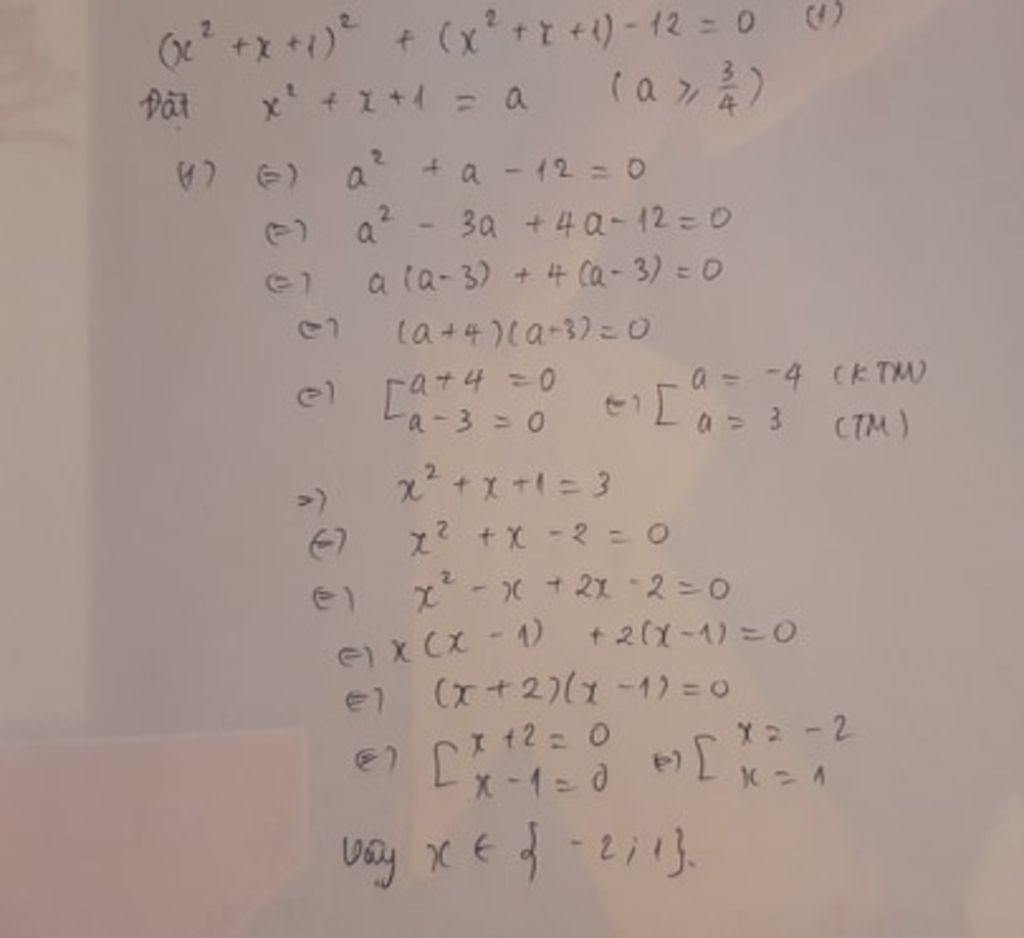 (x² + x + 1)² + (x² + x + 1) - 12 = 0 (1)
Đặt x² + x + 1 = a (a ⩾ 3/4)
(1) (=) a² + a - 12 = 0
(=) a² - 3a + 4a - 12 = 0
(=) a(a - 3) + 4(a - 3) = 0
(=) (a + 4)(a - 3) = 0
(=) [ a + 4 = 0 (=) [ a = -4 (KTM)
a - 3 = 0 a = 3 (TM)
=) x² + x + 1 = 3
(=) x² + x - 2 = 0
(=) x² - x + 2x - 2 = 0
(=) x(x - 1) + 2(x - 1) = 0
(=) (x + 2)(x - 1) = 0
(=) [ x + 2 = 0 (=) [ x = -2
x - 1 = 0 x = 1
Vậy x ∈ { -2; 1}.